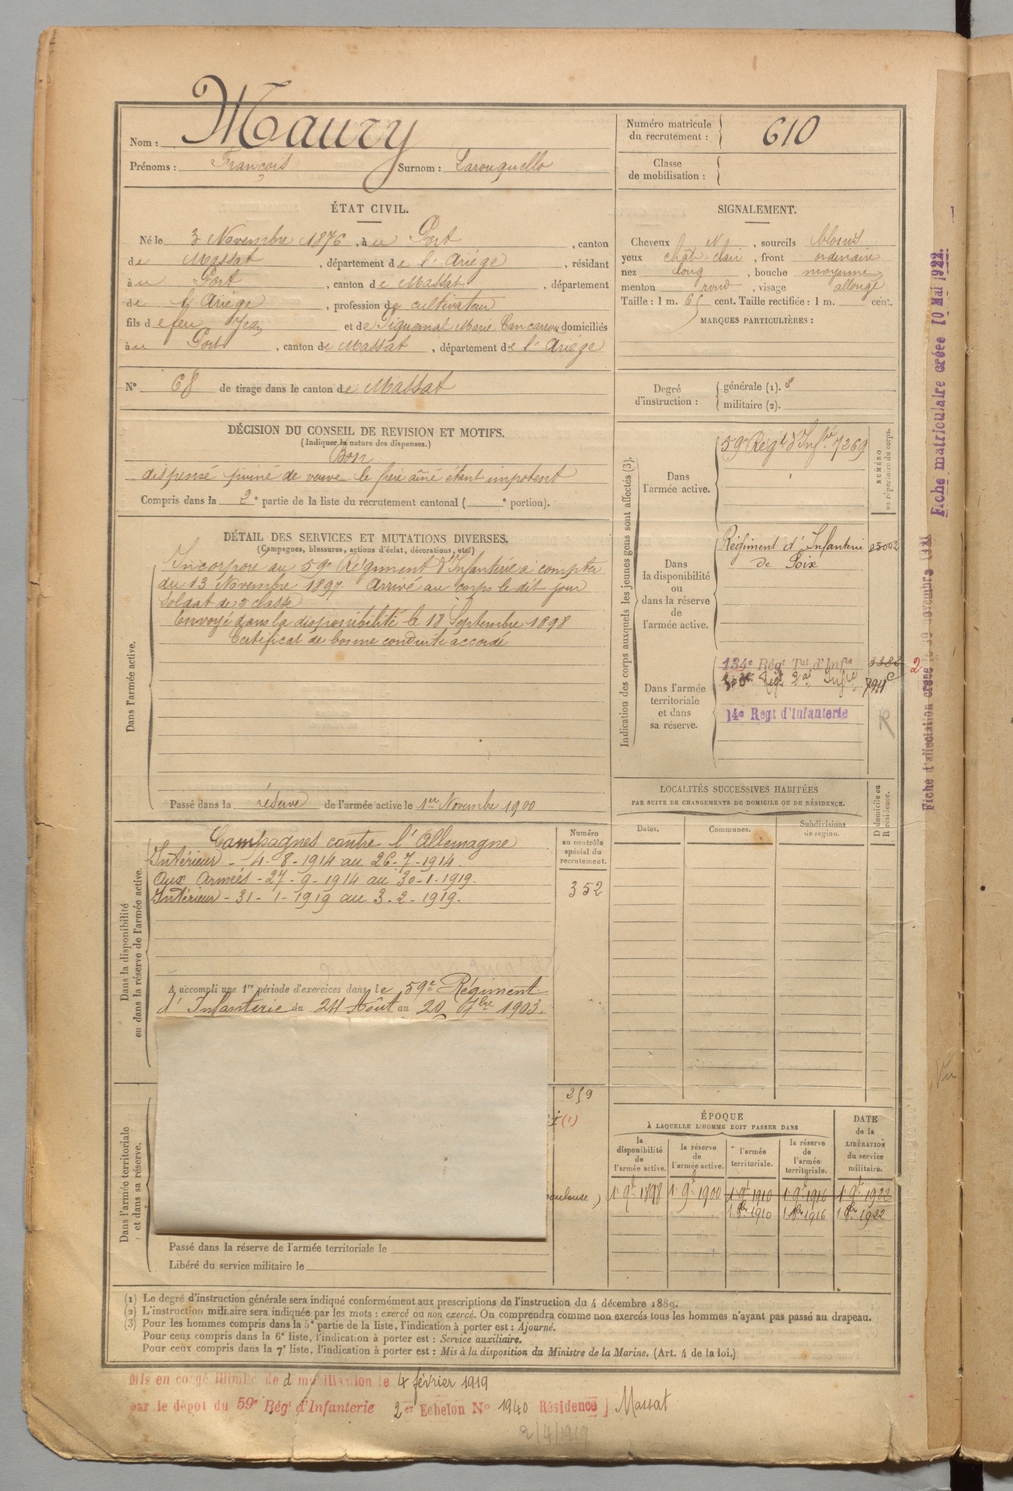 Nom : Maury
Prénoms : François Surnom : Larouquello
Numéro matricule du recrutement : 610
Classe de mobilisation :
ÉTAT CIVIL.
Né le 3 Novembre 1876, à au Port, canton
de Massat, département de l'Ariège, résidant
à au Port, canton de Massat, département
de l'Ariège, profession de cultivateur
fils de feu Jean et de Piquemal Marie domiciliés
à au Port, canton de Massat, département de l'Ariège
N° 68 de tirage dans le canton de Massat
SIGNALEMENT.
Cheveux N, sourcils blonds
yeux chât-clair, front ordinaire
nez long, bouche moyenne
menton rond, visage allongé
Taille : 1 m. 65 cent. Taille rectifiée : 1 m. cent.
MARQUES PARTICULIÈRES :
Degré d'instruction : générale (1). 3
militaire (2).
DÉCISION DU CONSEIL DE REVISION ET MOTIFS.
(Indiquer la nature des dispenses.)
Bon
dispensé puiné de veuve le frère aîné étant impotent
Compris dans la 2e partie de la liste du recrutement cantonal ( e portion).
DÉTAIL DES SERVICES ET MUTATIONS DIVERSES.
(Campagnes, blessures, actions d'éclat, décorations, etc.)
Dans l'armée active.
Incorporé au 59e Régiment d'Infanterie à compter
du 13 Novembre 1897 Arrivé au corps le dit jour
soldat de 2e classe
Envoyé dans la disponibilité le 18 Septembre 1898
Certificat de bonne conduite accordé
Passé dans la réserve de l'armée active le 1er Novembre 1900
Indication des corps auxquels les jeunes gens sont affectés (3).
NUMÉRO au répertoire du corps.
Dans l'armée active.
59e Régt d'Infrie 7269
Dans la disponibilité ou dans la réserve de l'armée active.
Régiment d'Infanterie
de Foix
Dans l'armée territoriale et dans sa réserve.
134e Régt Tal d'Infie
14e Regt d'Infanterie
R
2
LOCALITÉS SUCCESSIVES HABITÉES
PAR SUITE DE CHANGEMENTS DE DOMICILE OU DE RÉSIDENCE.
Dates. Communes. Subdivisions de région. D domicile ou R résidence.
Dans la disponibilité ou dans la réserve de l'armée active.
Campagnes contre l'Allemagne
Intérieur - 4-8-1914 au 26-7-1914.
Aux Armées - 27-9-1914 au 30-1-1919.
Intérieur - 31-1-1919 au 3-2-1919.
Numéro au contrôle spécial du recrutement.
352
A accompli une 1re période d'exercices dans le 59e Régiment
d'Infanterie du 24 Août au 20 7bre 1903.
259
(1)
oulouse)
Dans l'armée territoriale et dans sa réserve.
Passé dans la réserve de l'armée territoriale le
Libéré du service militaire le
ÉPOQUE
À LAQUELLE L'HOMME DOIT PASSER DANS
la disponibilité de l'armée active.
la réserve de l'armée active.
l'armée territoriale.
la réserve de l'armée territoriale.
DATE de la LIBÉRATION du service militaire.
1 9e 1898 1 9e 1900 1 9e 1910 1 9e 1916 1 9e 1922
1 8bre 1910 1 8bre 1916 1 8bre 1922
(1) Le degré d'instruction générale sera indiqué conformément aux prescriptions de l'instruction du 4 décembre 1889.
(2) L'instruction militaire sera indiquée par les mots : exercé ou non exercé. On comprendra comme non exercés tous les hommes n'ayant pas passé au drapeau.
(3) Pour les hommes compris dans la 5e partie de la liste, l'indication à porter est : Ajourné.
Pour ceux compris dans la 6e liste, l'indication à porter est : Service auxiliaire.
Pour ceux compris dans la 7e liste, l'indication à porter est : Mis à la disposition du Ministre de la Marine. (Art. 4 de la loi.)
Mis en congé illimité de démobilisation le 4 février 1919
par le dépôt du 59e Régt d'Infanterie 2e Echelon N° 1940 Résidence Massat
2/4/1919
Fiche matriculaire créée 10 Mai 1922.
Fiche d'affectation créée le 10 novembre 1921